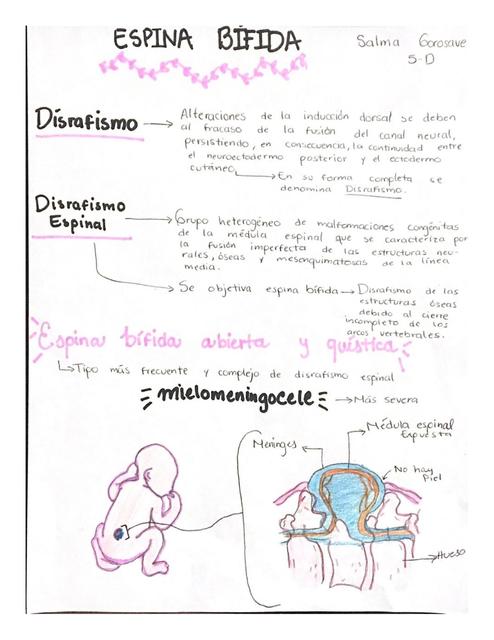 ESPINA BÍFIDA
Salma Gorosave
5-D
Disrafismo
Alteraciones de la inducción dorsal se deben
al fracaso de la fusión del canal neural,
persistiendo, en consecuencia, la continuidad entre
el neuroectodermo posterior y el ectodermo
cutáneo
En su forma completa se
denomina Disrafismo.
Disrafismo
Espinal
Grupo heterogéneo de malformaciones congénitas
de la médula espinal que se caracteriza por
la fusión imperfecta de las estructuras neu-
rales, óseas y mesenquimatosas de la línea
media.
Se objetiva espina bífida
Disrafismo de las
estructuras óseas
debido al cierre
incompleto de los
arcos vertebrales.
Espina bífida abierta y quística
Tipo más frecuente y complejo de disrafismo espinal
mielomeningocele
Más severa
Meninges
Médula espinal
Expuesta
No hay
Piel
Hueso